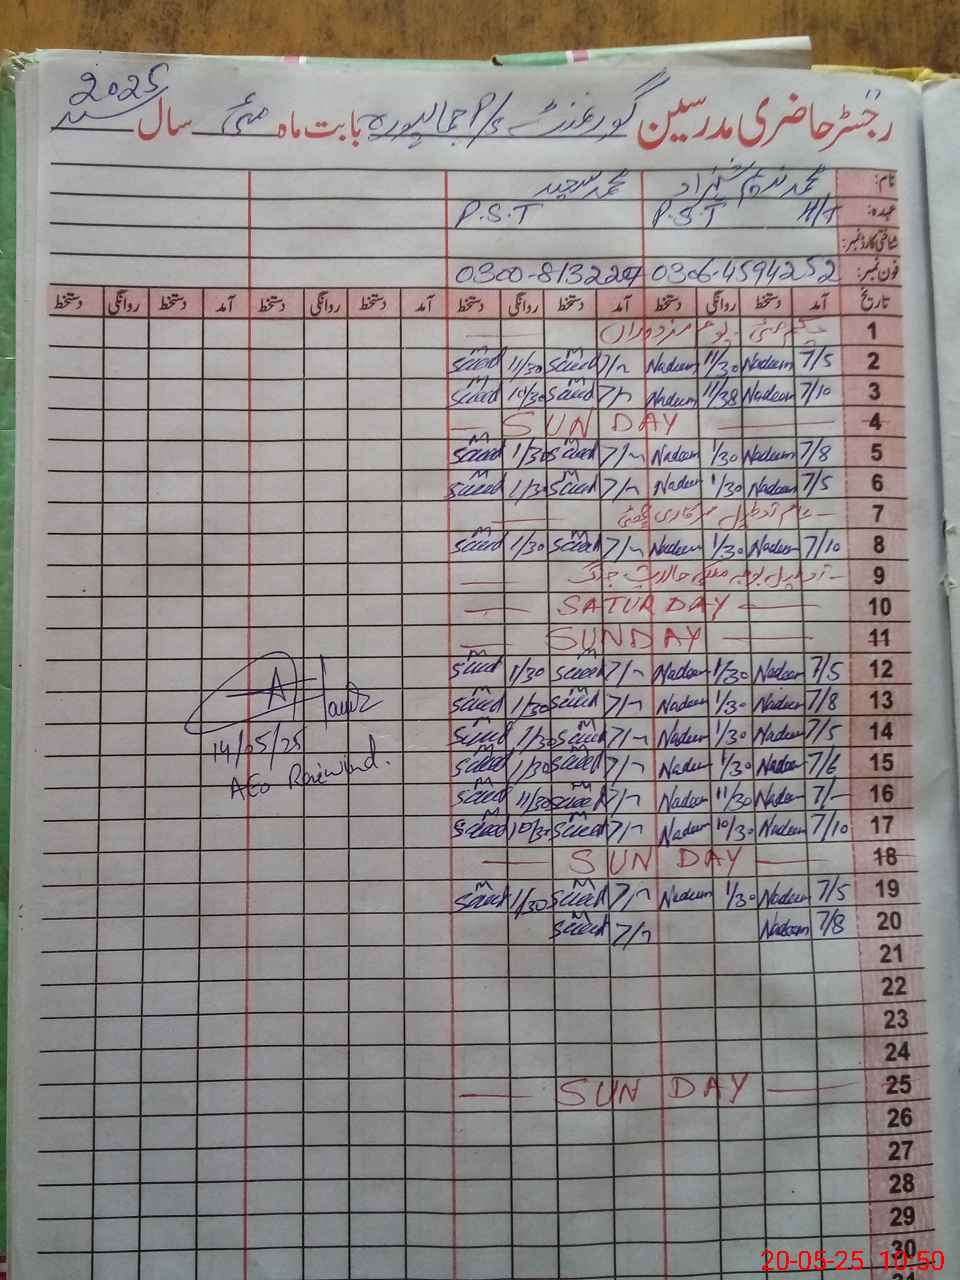 رجسٹر حاضری مدرسین گورنمنٹ P/S جمالپورہ بابت ماہ مئی سال 2025
نام: محمد ندیم شہزاد محمد سعید
عہدہ: H/T P.S.T P.S.T
شناختی کارڈ نمبر:
فون نمبر: 0306-4594252
تاریخ آمد دستخط روانگی دستخط آمد دستخط روانگی دستخط آمد دستخط روانگی دستخط آمد دستخط روانگی دستخط
1 یکم مئی - یوم مزدوراں
2 7/5 Nadeem 11/30 Nadeem 7/ Saeed 11/30 Saeed
3 7/10 Nadeem 11/38 Nadeem 7/ Saeed 10/30 Saeed
4 SUN DAY
5 7/8 Nadeem 1/30 Nadeem 7/ Saeed 1/30 Saeed
6 7/5 Nadeem 1/30 Nadeem 7/ Saeed 1/30 Saeed
7
8 7/10 Nadeem 1/30 Nadeem 7/ Saeed 1/30 Saeed
9
10 SATURDAY
11 SUNDAY
12 7/5 Nadeem 1/30 Nadeem 7/ Saeed 1/30 Saeed
13 7/8 Nadeem 1/30 Nadeem 7/ Saeed 1/30 Saeed
14 7/5 Nadeem 1/30 Nadeem 7/ Saeed 1/30 Saeed
14/05/25
15 7/6 Nadeem 1/30 Nadeem 7/ Saeed 1/30 Saeed
AEO Raiwind.
16 7/ Nadeem 11/30 Nadeem 7/ Saeed 11/30 Saeed
17 7/10 Nadeem 10/30 Nadeem 7/ Saeed 10/30 Saeed
18 SUN DAY
19 7/5 Nadeem 1/30 Nadeem 7/ Saeed 1/30 Saeed
20 7/8 Nadeem 7/ Saeed
21
22
23
24
25 SUN DAY
26
27
28
29
30
20-05-25 10:50